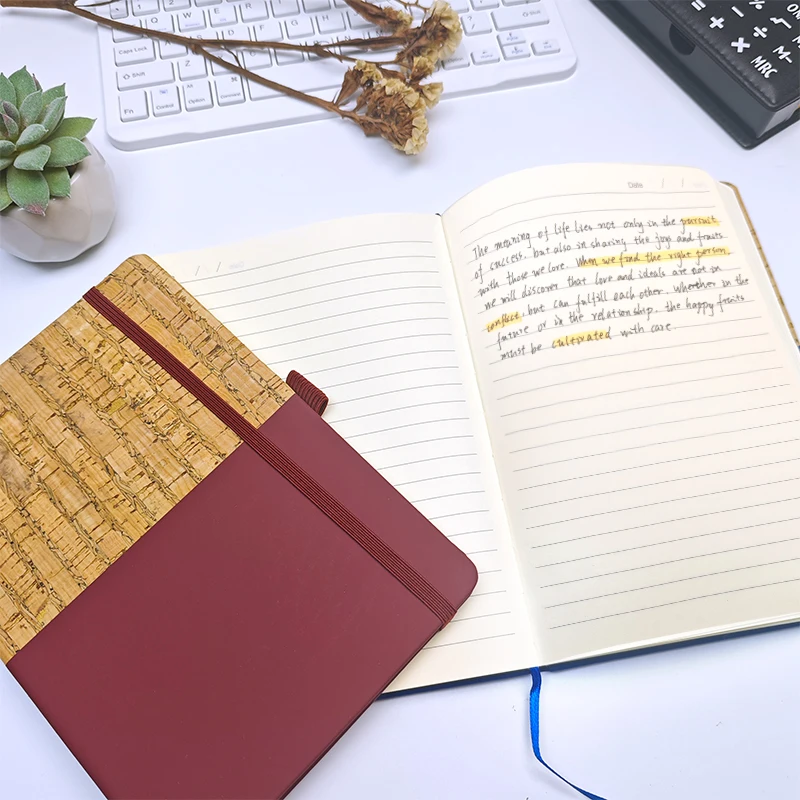 Caps Lock
Shift
Z
Fn
Control
Option
Command
Shift
ON
M-
MRC
Date / /
The meaning of life lies not only in the pursuit
of success, but also in sharing the joys and fruits
with those we love. When we find the right person,
we will discover that love and ideals are not in
conflict, but can fulfill each other. Wherether in the
future or in the relationship, the happy fruits
must be cultivated with care